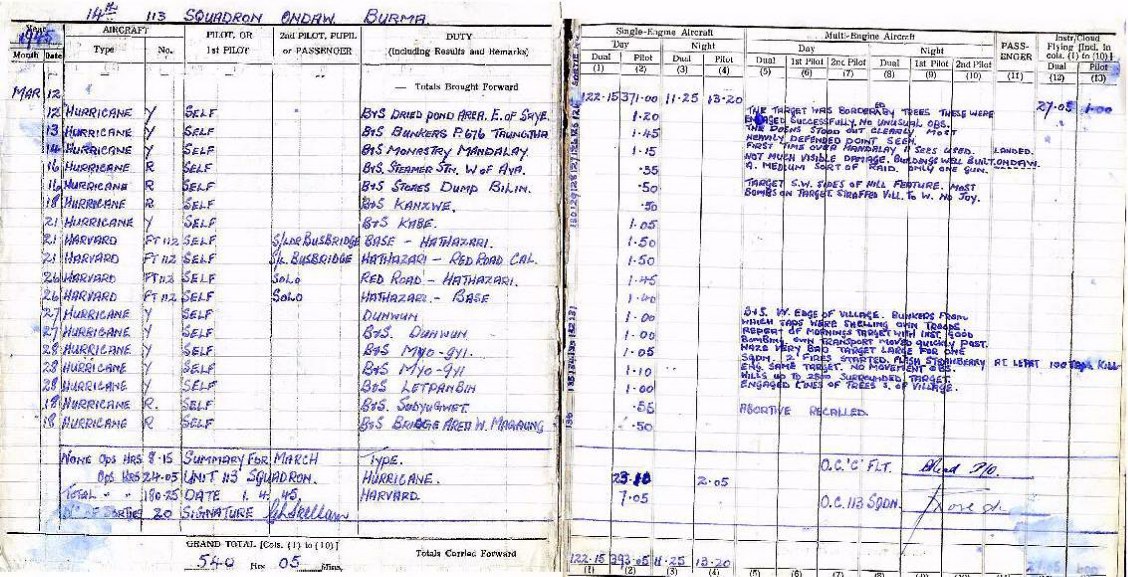 14th 113 SQUADRON ONDAW. BURMA.
1945 AIRCRAFT PILOT, OR 1ST PILOT 2ND PILOT, PUPIL or PASSENGER DUTY (Including Results and Remarks)
Month Date Type No.
— Totals Brought Forward
MAR 12
12 HURRICANE Y SELF B+S DRIED POND AREA. E. of SAYE.
13 HURRICANE Y SELF B+S BUNKERS P.676 TAUNGTHA
14 HURRICANE Y SELF B+S MONASTRY MANDALAY
16 HURRICANE R SELF B+S STEAMER STN. W of AVA.
16 HURRICANE R SELF B+S STORES DUMP BILIN.
18 HURRICANE R SELF B+S KANZWE.
21 HURRICANE Y SELF B+S KABE.
21 HARVARD FT112 SELF S/LDR BUSBRIDGE BASE – HATHAZARI.
21 HARVARD FT112 SELF S/L. BUSBRIDGE HATHAZARI – RED ROAD CAL.
26 HARVARD FT112 SELF SOLO RED ROAD – HATHAZARI.
26 HARVARD FT112 SELF SOLO HATHAZARI. – BASE
27 HURRICANE Y SELF DUNWUN
27 HURRICANE Y SELF B+S. DUNWUN
28 HURRICANE Y SELF B+S MYO-GYI.
28 HURRICANE Y SELF B+S MYO-GYI
28 HURRICANE Y SELF B+S LETPANBIN
18 HURRICANE R. SELF B+S.
18 HURRICANE R SELF B+S BRIDGE AREA W. MAGAUNG
NONE OPS HRS 8.15 SUMMARY FOR MARCH TYPE.
OPS HRS 24.05 UNIT 113 SQUADRON. HURRICANE.
TOTAL " " 180.25 DATE 1. 4. 45. HARVARD.
No OF SORTIES 20 SIGNATURE
GRAND TOTAL [Cols. (1) to (10)]
540 Hrs 05 Mins.
Totals Carried Forward
Single-Engine Aircraft Multi-Engine Aircraft PASS-ENGER Instr/Cloud Flying [Incl. in cols. (1) to (10)]
Day Night Day Night
Dual Pilot Dual Pilot Dual 1st Pilot 2nd Pilot Dual 1st Pilot 2nd Pilot Dual Pilot
(1) (2) (3) (4) (5) (6) (7) (8) (9) (10) (11) (12) (13)
122.15 371.00 11.25 13.20 27.05 1.00
1.20 THE TARGET WAS BORDERED BY TREES THESE WERE
ENGAGED SUCCESSFULLY. NO UNUSUAL OBS.
1.45 THE STOOD OUT CLEARLY. MOST
HEAVILY DEFENDED POINT SEEN.
1.15 FIRST TIME OVER MANDALAY 11 SECS USED. LANDED.
NOT MUCH VISIBLE DAMAGE. BUILDINGS WELL BUILT. ONDAW.
.55 A MEDIUM SORT OF RAID. ONLY ONE GUN.
.50 TARGET S.W. SIDES OF HILL FEATURE. MOST
BOMBS ON TARGET STRAFFED VILL. TO W. NO JOY.
.50
1.05
1.50
1.50
1.45
1.40
1.00 B+S. W. EDGE OF VILLAGE. BUNKERS FROM
WHICH JAPS WERE SHELLING OWN TROOPS
1.00 REPEAT OF MORNINGS TARGET WITH INST. GOOD
BOMBING. OWN TRANSPORT MOVED QUICKLY PAST.
1.05 HAZE VERY BAD TARGET LARGE FOR ONE
SQDN. 2 FIRES STARTED. FLASH STRAWBERRY AT LEAST 100 JAPS KILL
1.10 ENG. SAME TARGET. NO MOVEMENT OBS.
HILLS UP TO SURROUNDED TARGET.
1.00 ENGAGED LINES OF TREES S. OF VILLAGE.
.55 ABORTIVE RECALLED.
.50
O.C. 'C' FLT.
2.05
7.05 O.C. 113 SQDN.
122.15 393.05 11.25 13.20
(1) (2) (3) (4) (5) (6) (7) (8) (9) (10) (11) (12) (13)